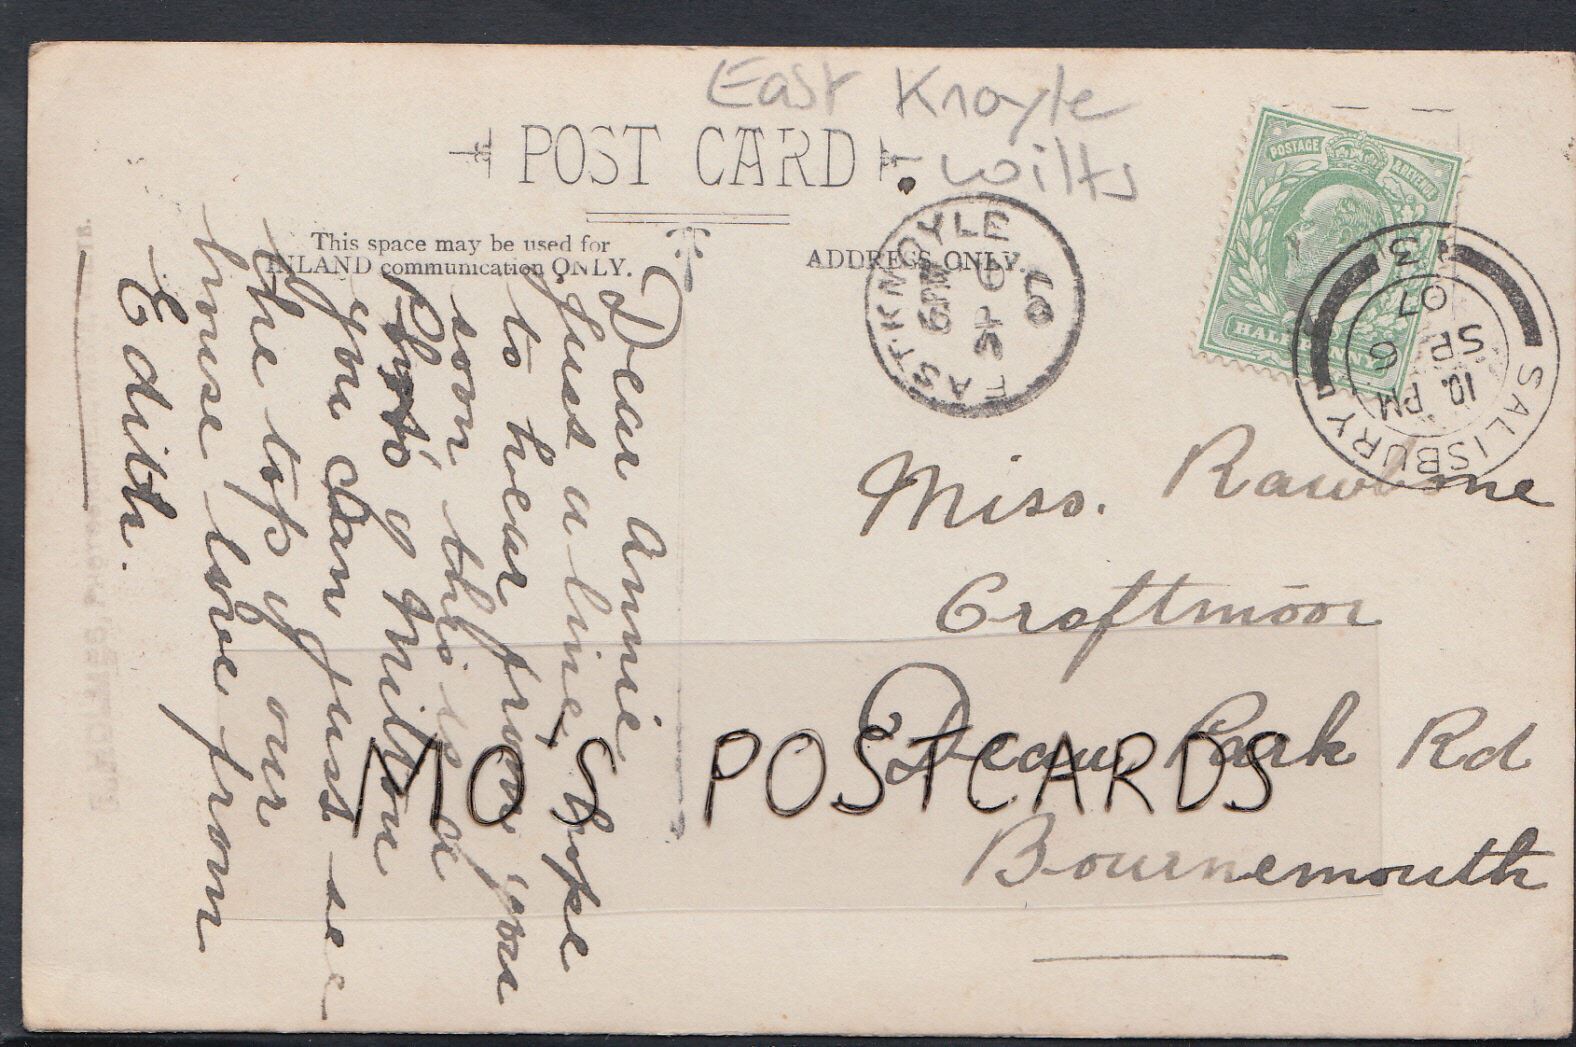 East Knoyle
Wilts
POST CARD
This space may be used for
INLAND communication ONLY.
ADDRESS ONLY.
EAST KNOYLE
6 PM
SP 6
07
POSTAGE & REVENUE
HALFPENNY
SALISBURY
10. PM
SP 6
07
3
Dear Annie
Just a line hope
to hear from you
soon this is a
Photo of Milton
you can just see
the top of our
house love from
Edith.
Miss. Rawbone
Croftmoor
Dean Park Rd
Bournemouth
MO'S POSTCARDS